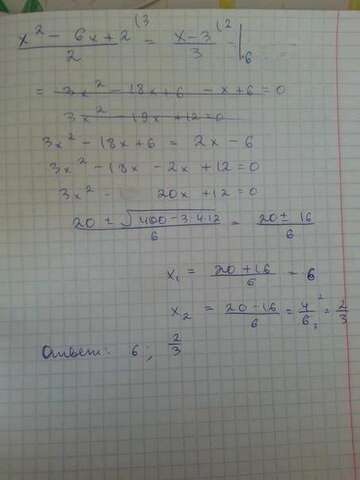 x² - 6x + 2 (3 / 2 = x - 3 (2 / 3 | 6
= 3x² - 18x + 6 - x + 6 = 0
3x² - 19x + 12 = 0
3x² - 18x + 6 = 2x - 6
3x² - 18x - 2x + 12 = 0
3x² - 20x + 12 = 0
20 ± √400 - 3·4·12 / 6 = 20 ± 16 / 6
x₁ = 20 + 16 / 6 = 6
x₂ = 20 - 16 / 6 = 4 / 6 = 2 / 3
Ответ: 6; 2/3